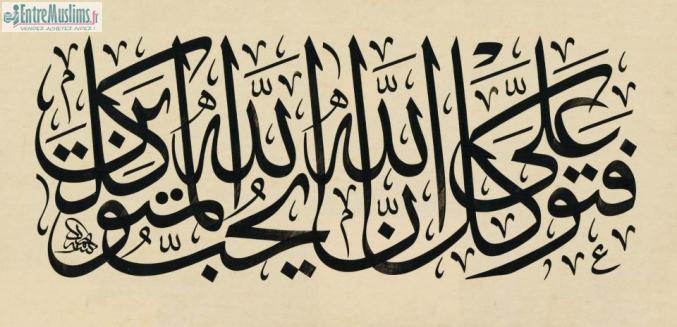 EntreMuslims.fr
VENDEZ ACHETEZ AIDEZ !
فتوكل على الله إن الله يحب المتوكلين